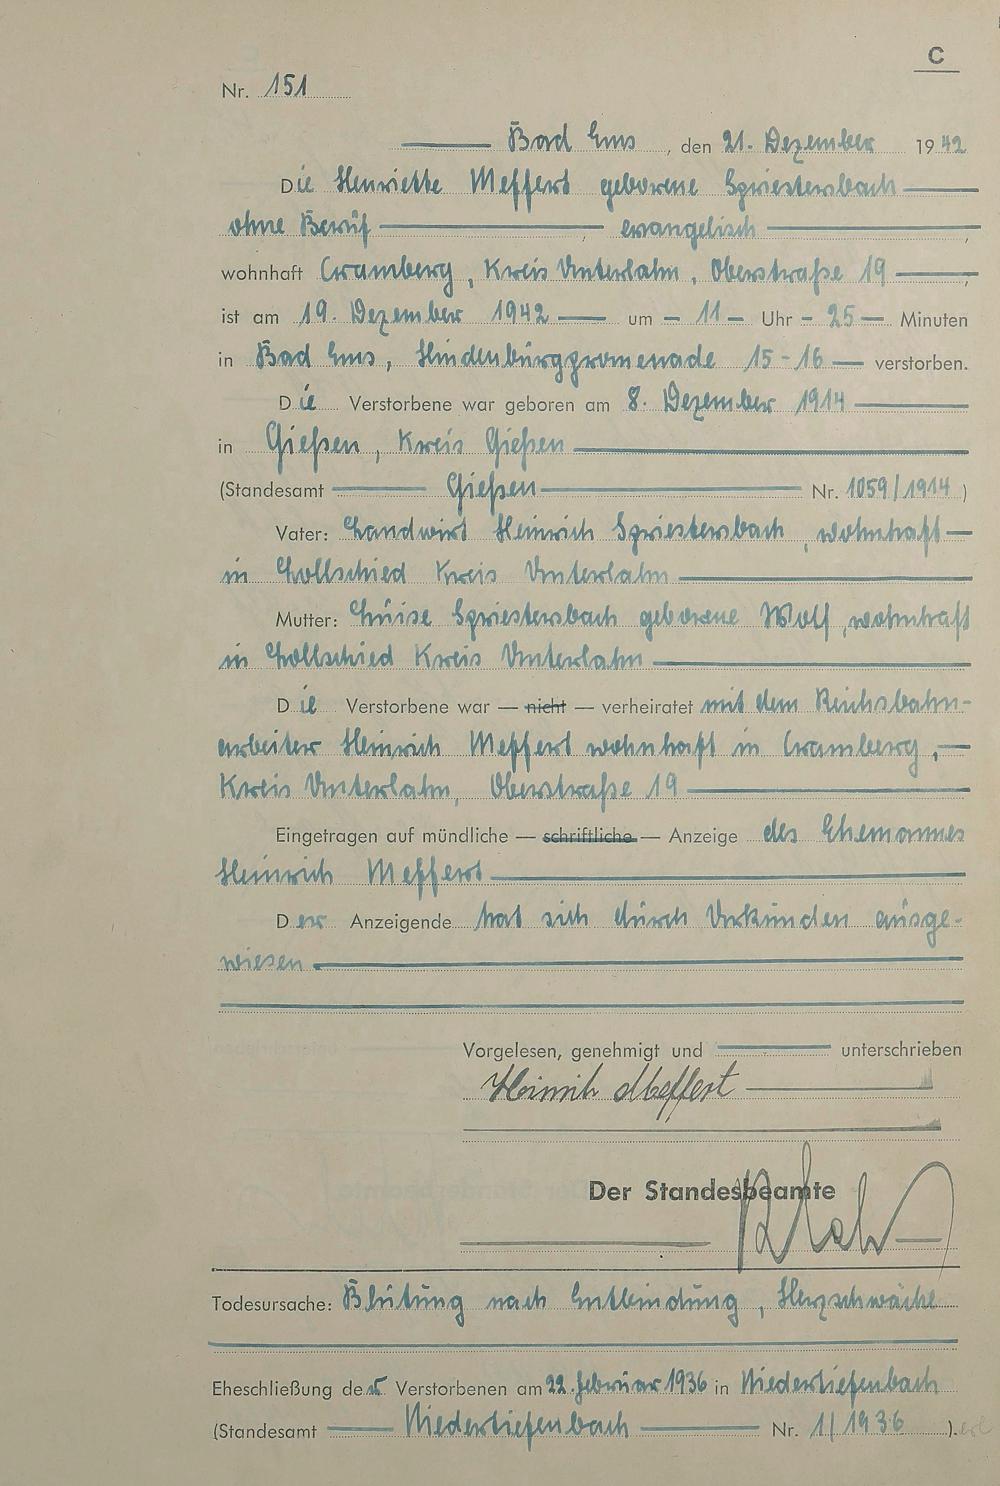 C
Nr. 151
Bad Ems, den 21. Dezember 1942
Die Henriette Meffert geborene Spriestersbach
ohne Beruf evangelisch
wohnhaft Cramberg, Kreis Unterlahn, Oberstraße 19
ist am 19. Dezember 1942 um 11 Uhr 25 Minuten
in Bad Ems, Hindenburgpromenade 15-16 verstorben.
Die Verstorbene war geboren am 8. Dezember 1914
in Gießen, Kreis Gießen
(Standesamt Gießen Nr. 1059/1914)
Vater: Landwirt Heinrich Spriestersbach, wohnhaft
in Lollschied Kreis Unterlahn
Mutter: Luise Spriestersbach geborene Wolf, wohnhaft
in Lollschied Kreis Unterlahn
Die Verstorbene war — nicht — verheiratet mit dem Reichsbahn-
arbeiter Heinrich Meffert wohnhaft in Cramberg,
Kreis Unterlahn, Oberstraße 19
Eingetragen auf mündliche — schriftliche — Anzeige des Ehemannes
Heinrich Meffert
Der Anzeigende hat sich durch Urkunden ausge-
wiesen
Vorgelesen, genehmigt und unterschrieben
Heinrich Meffert
Der Standesbeamte
Todesursache: Blutung nach Entbindung, Herzschwäche
Eheschließung der Verstorbenen am 22. Februar 1936 in Niedertiefenbach
(Standesamt Niedertiefenbach Nr. 1/1936).